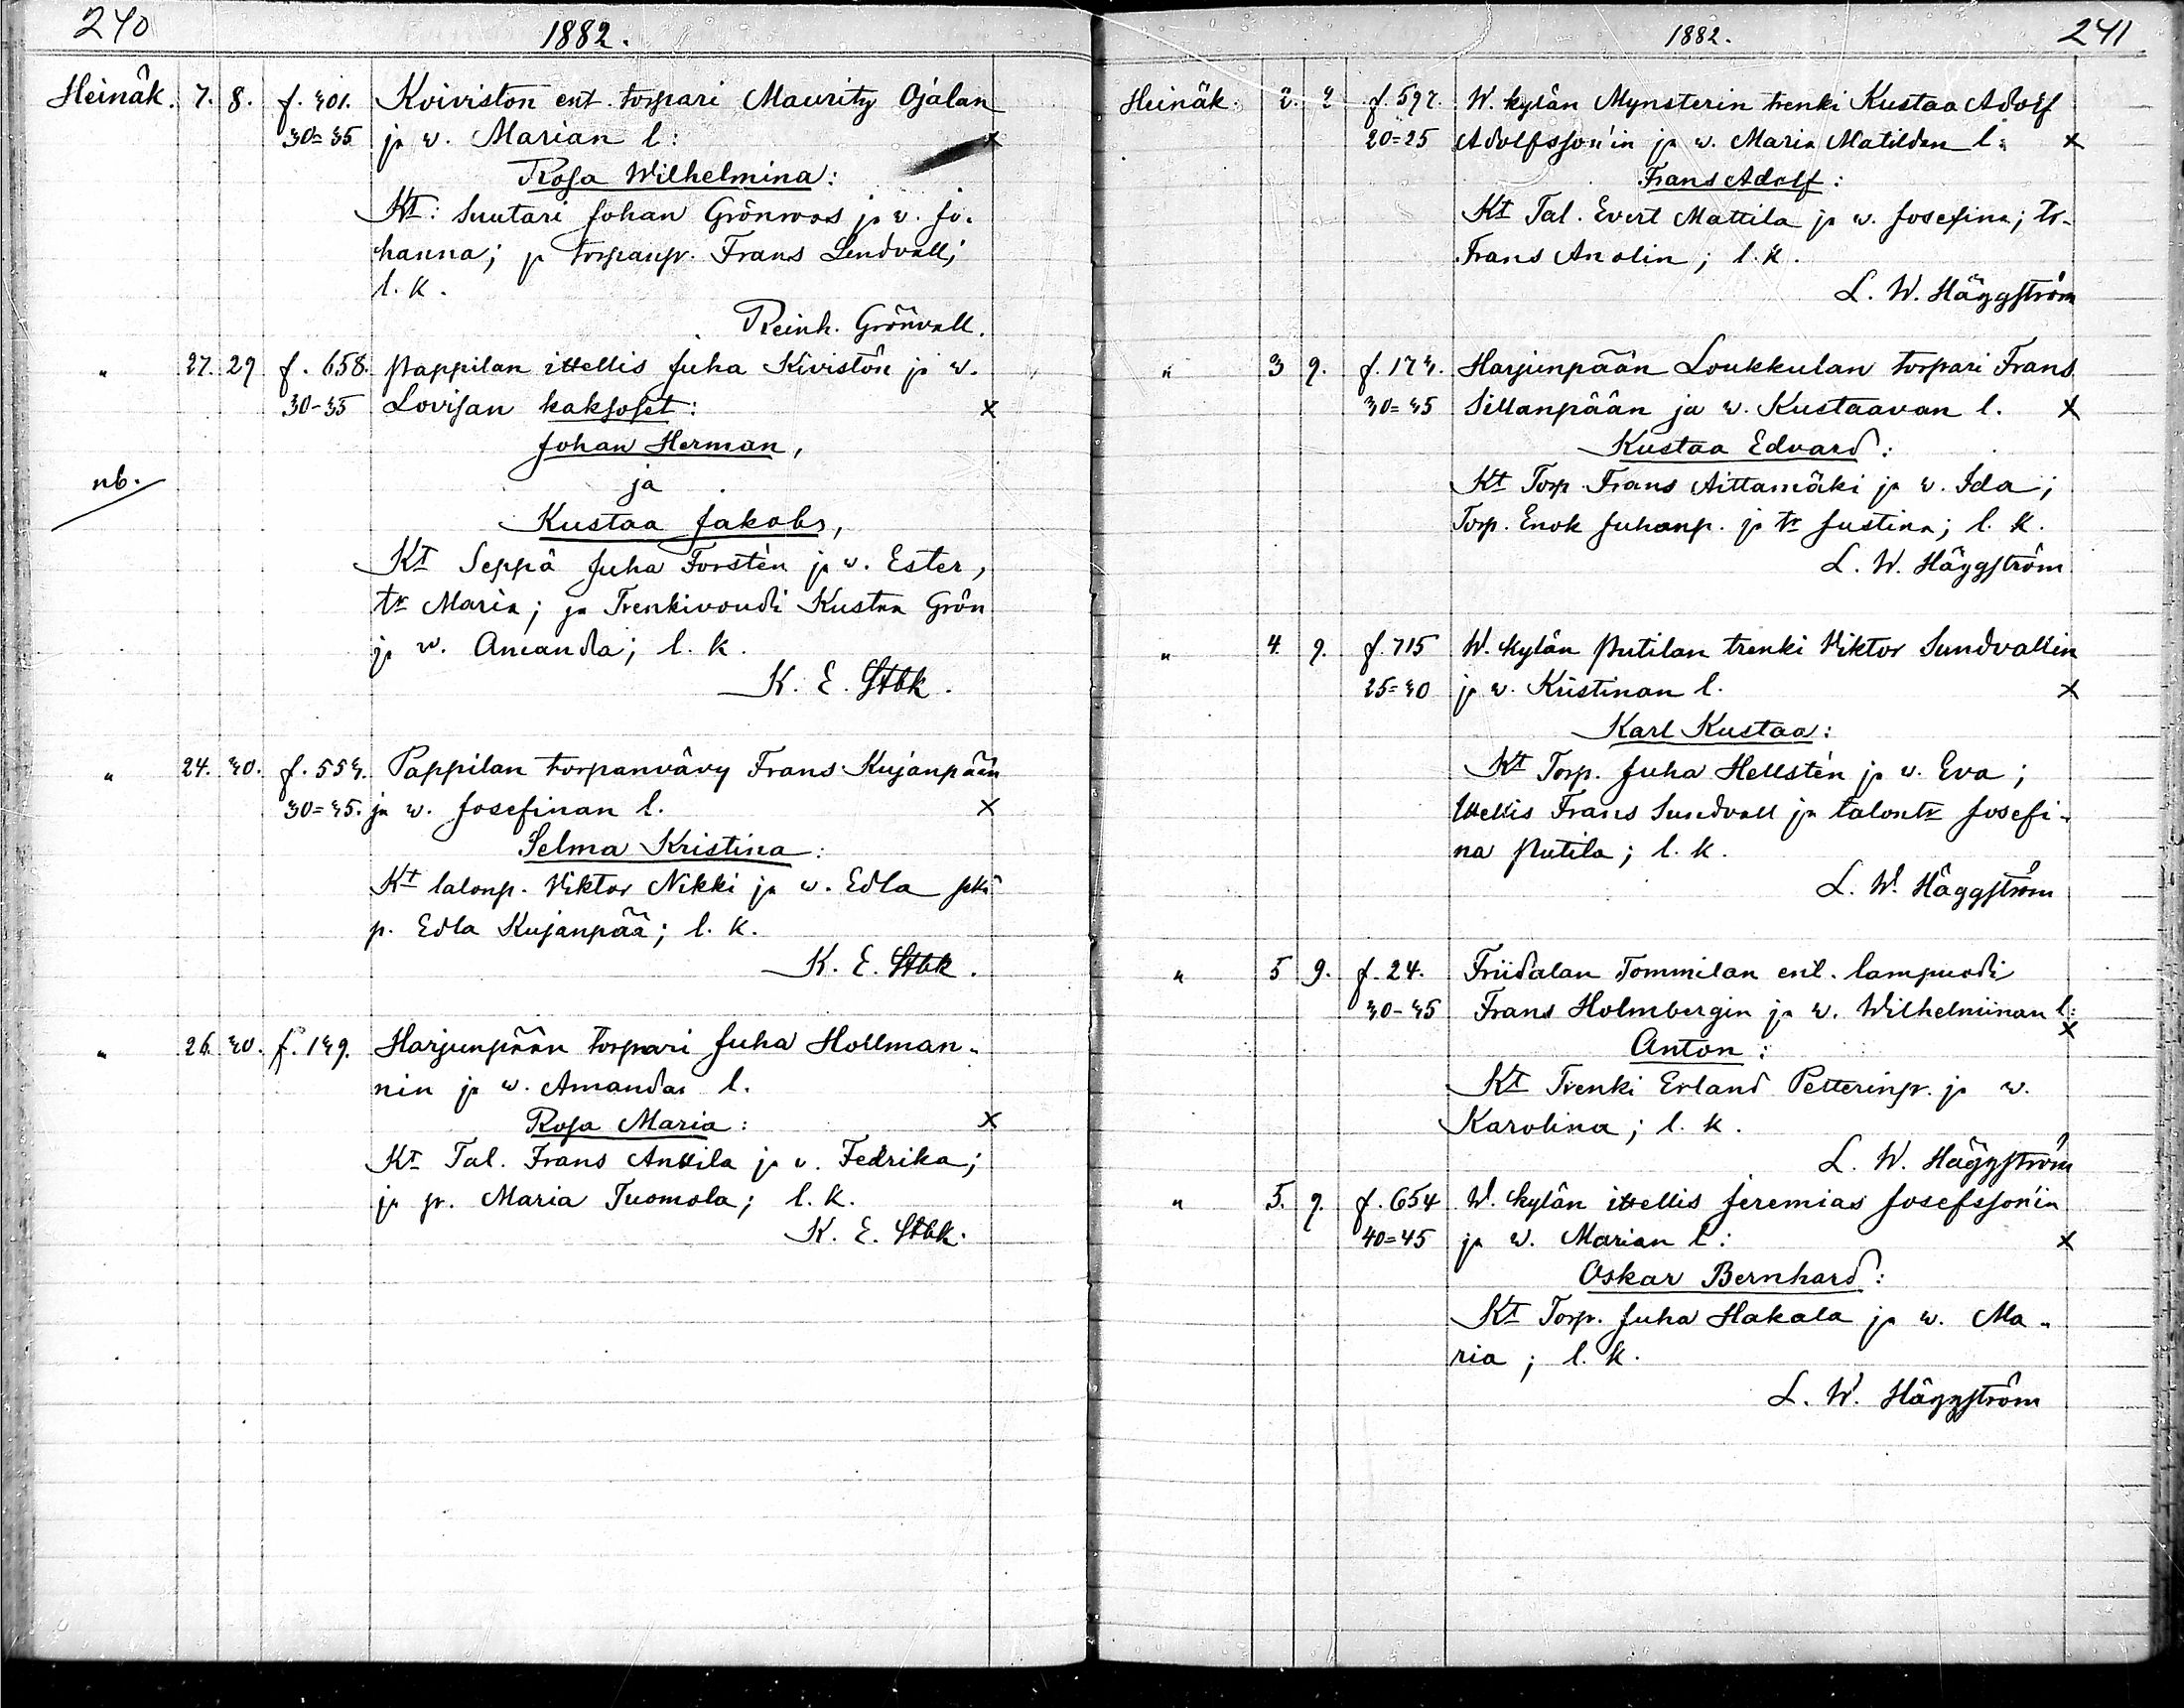 240
1882.
Heinäk. 7. 8. f. 301. Koiviston ent. torpari Mauritz Ojalan
30=35 ja w. Marian l: x
Rosa Wilhelmina:
Kt: Suutari Johan Grönroos ja w. Jo-
hanna; ja torpanp. Frans Lindvall;
l. k.
Reinh. Grönvall.
" 27. 29 f. 658. Pappilan ittellis Juha Kivistön ja w.
30-35 Lovisan kaksoset: x
Johan Herman,
nb. ja
Kustaa Jakob,
Kt Seppä Juha Forstén ja w. Ester,
tr Maria; ja Trenkivouti Kustaa Grön
ja w. Amanda; l. k.
K. E. Stbk.
" 24. 30. f. 553. Pappilan torpanvävy Frans Kujanpään
30=35. ja w. Josefinan l. x
Selma Kristina:
Kt talonp. Viktor Nikki ja w. Edla
p. Edla Kujanpää; l. k.
K. E. Stbk.
" 26. 30. f. 139. Harjunpään torpari Juha Hollman-
nin ja w. Amandan l.
Rosa Maria: x
Kt Tal. Frans Anttila ja w. Fedrika;
ja p. Maria Tuomola; l. k.
K. E. Stbk.
1882. 241
Heinäk. 2. 2 f. 597. W. kylän Mynsterin trenki Kustaa Adolf
20=25 Adolfsson'in ja w. Maria Matildan l: x
Frans Adolf:
Kt Tal. Evert Mattila ja w. Josefina; tr.
Frans Anolin; l. k.
L. W. Häggström
" 3 9. f. 173. Harjunpään Loukkulan torpari Frans
30=35 Sillanpään ja w. Kustaavan l. x
Kustaa Edvard:
Kt Torp. Frans Aittamäki ja w. Ida;
Torp. Enok Juhanp. ja tr Justina; l. k.
L. W. Häggström
" 4. 9. f. 715 W. kylän Putilan trenki Viktor Sundvallin
25=30 ja w. Kristinan l. x
Karl Kustaa:
Kt Torp. Juha Hellstén ja w. Eva;
Ittellis Frans Sundvall ja talontr Josefi-
na Putila; l. k.
L. W. Häggström
" 5 9. f. 24. Friidalan Tommilan ent. lampuodi
30-35 Frans Holmbergin ja w. Wilhelmiinan l: x
Anton:
Kt Trenki Erland Petterinp. ja w.
Karolina; l. k.
L. W. Häggström
" 5. 9. f. 654 W. kylän ittellis Jeremias Josefsson'in
40=45 ja w. Marian l: x
Oskar Bernhard:
Kt Torp. Juha Hakala ja w. Ma-
ria; l. k.
L. W. Häggström